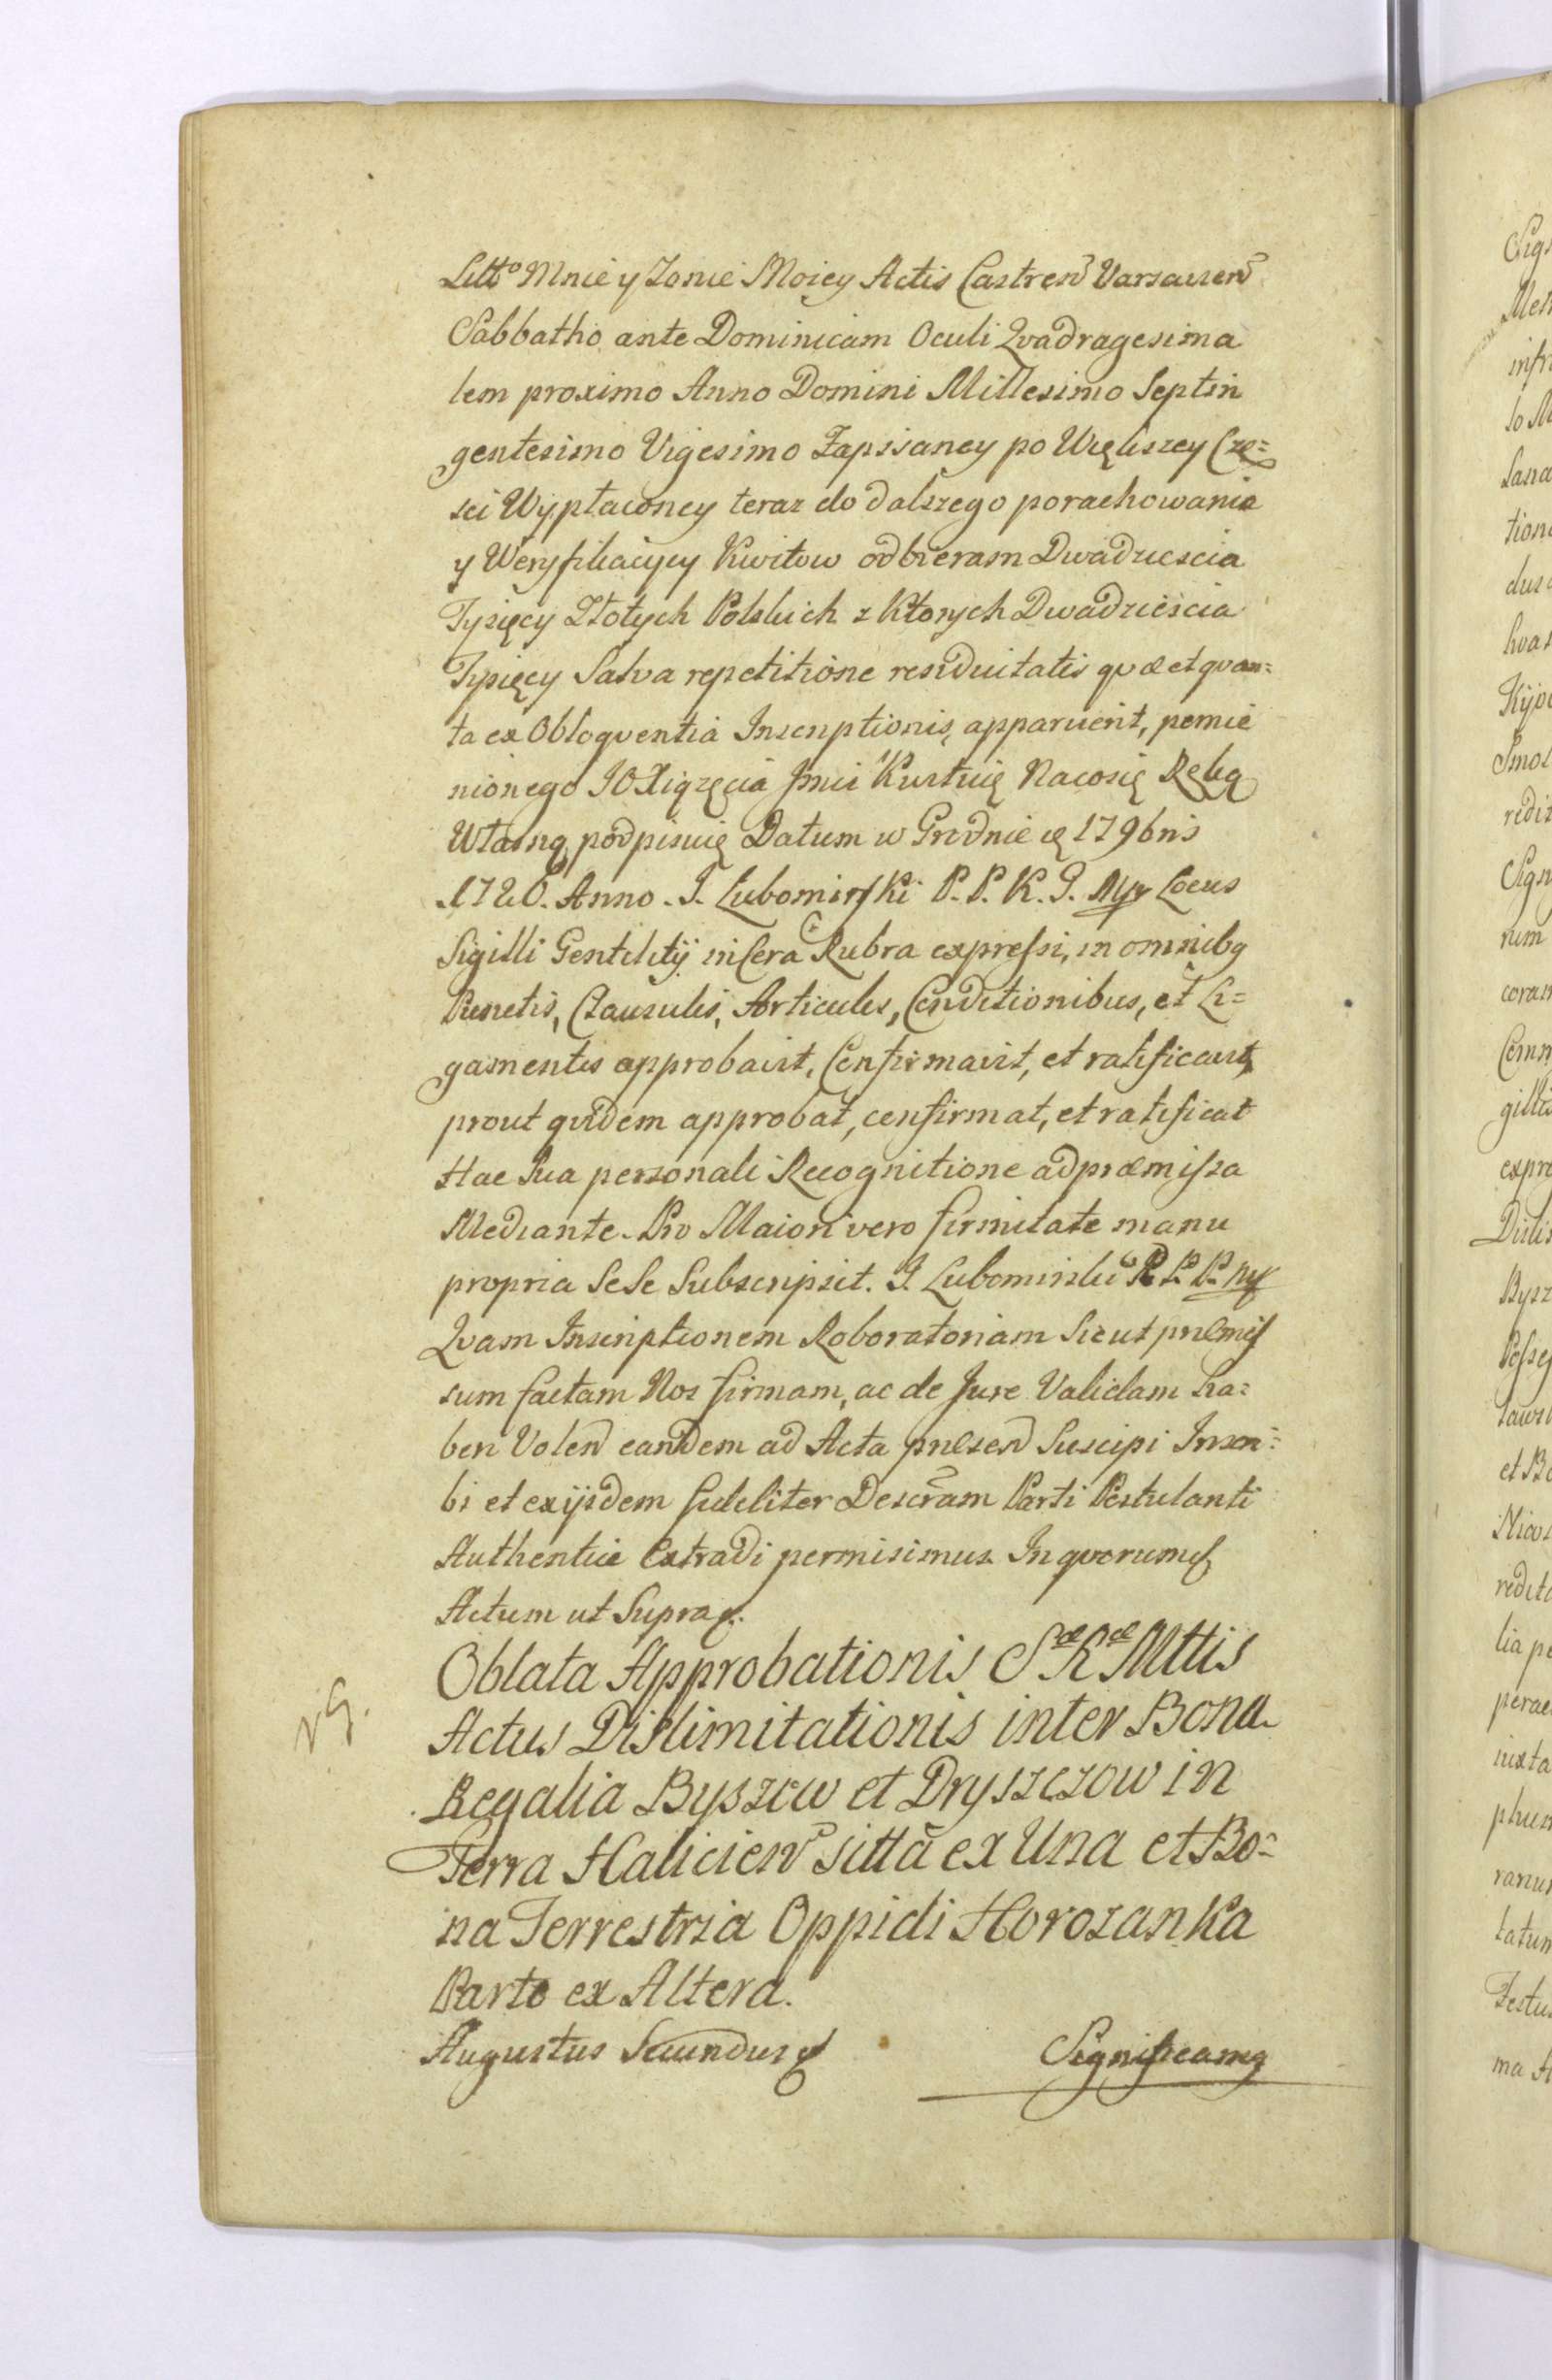 Litto Mnie y Zonie Moiey Actis Castren Varsavien
Sabbatho ante Dominicam Oculi Qvadragesima
lem proximo Anno Domini Millesimo Septin
gentesimo Vigesimo Zapisaney po Większey Czę=
sci Wypłaconey teraz do dalszego porachowania
y Weryfikacycy Kwitow odbieram Dwadziescia
Tysięcy Złotych Polskich z Ktorych Dwadziescia
Tysięcy Salva repetitione residuitatis qvæ et qvan=
ta ex Obloqventia Inscriptionis, apparuerit, pomie
nionego JOXiązęcia Jmci Kwituię Nacosię Ręką
Własną podpisuię Datum w Grodnie 1796ris
1726. Anno. J. Lubomirski P. P. K. J. Mpp Locus
Sigilli Gentilitij in Cera Rubra expressi, in omnibq
Punctis, Clausulis, Articulis, Conditionibus, et Li=
gamentis approbavit, Confirmavit, et ratificavit,
prout qvidem approbat, confirmat, et ratificat
Hac Sua personali Recognitione ad præmissa
Mediante. Pro Maiori vero firmitate manu
propria Se Se Subscripsit. J. Lubomirski P. P. mp
Qvam Inscriptionem Roboratoriam Sicut præmis
sum factam Nos firmam, ac de Jure Validam ha=
ben Volen eandem ad Acta præsen Suscipi Inscri=
bi et ex ijsdem fideliter Descram Parti Postulanti
Authentice Extradi permisimus. In qvorum
Actum ut Supra
Oblata Approbationis Sæ Ræ Mttis
Actus Dislimitationis inter Bona
Regalia Byszow et Dryszczow in
Terra Halicien sitta ex Una et Bo=
na Terrestria Oppidi Horozanka
Parte ex Altera.
Augustus Secundus
Significamq